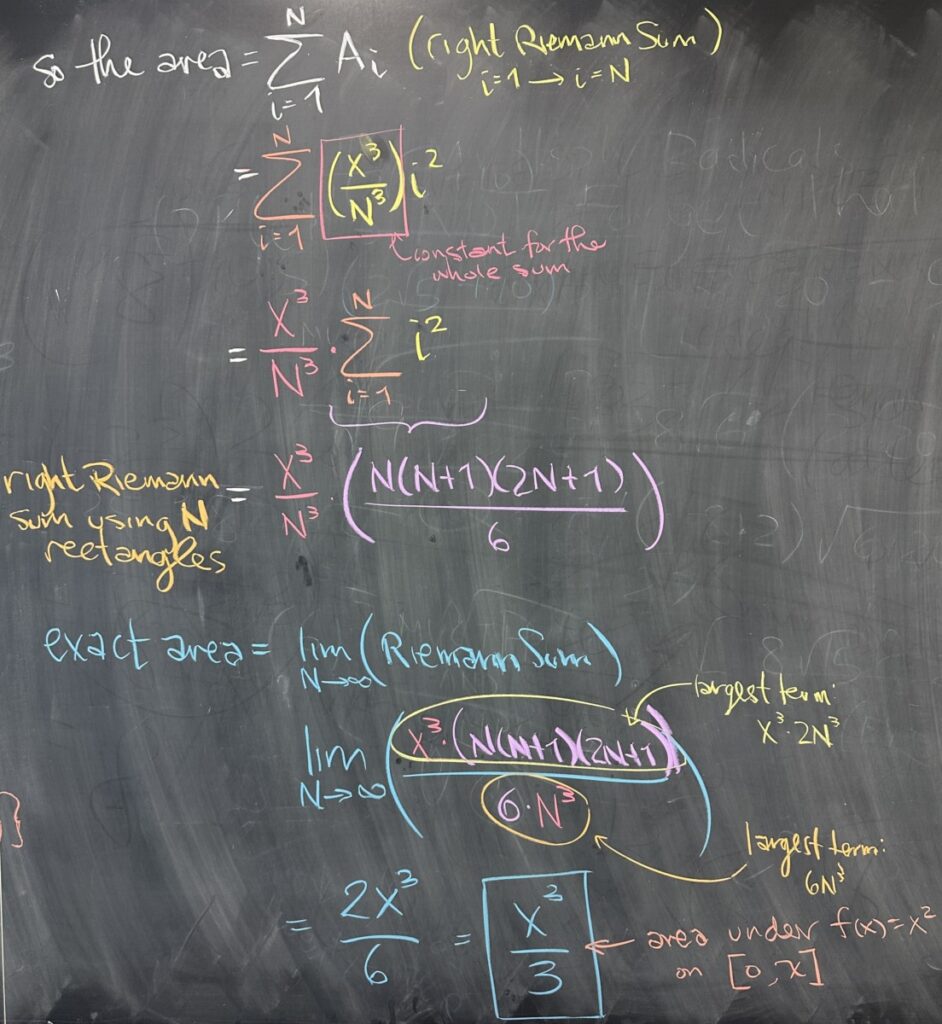 so the area = \sum_{i=1}^{N} A_i (right Riemann Sum)
i=1 → i=N
= \sum_{i=1}^{N} (x^3/N^3) i^2
constant for the
whole sum
= x^3/N^3 · \sum_{i=1}^{N} i^2
right Riemann
sum using N
rectangles
= x^3/N^3 · (N(N+1)(2N+1)/6)
exact area = lim_{N→∞} (Riemann Sum)
largest term:
x^3·2N^3
lim_{N→∞} (x^3·(N(N+1)(2N+1))/6·N^3)
largest term:
6N^3
= 2x^3/6 = x^3/3 ← area under f(x)=x^2
on [0,x]